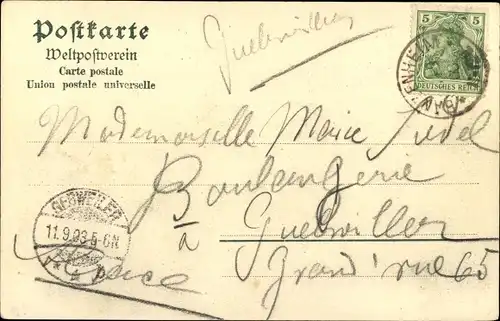 Postkarte
Weltpostverein
Carte postale
Union postale universelle
Guebwiller
5 5
DEUTSCHES REICH
Mademoiselle Marie
Boulangerie
Guebwiller
Grand'rue 65
GEBWEILER
11.9.03.5-6N